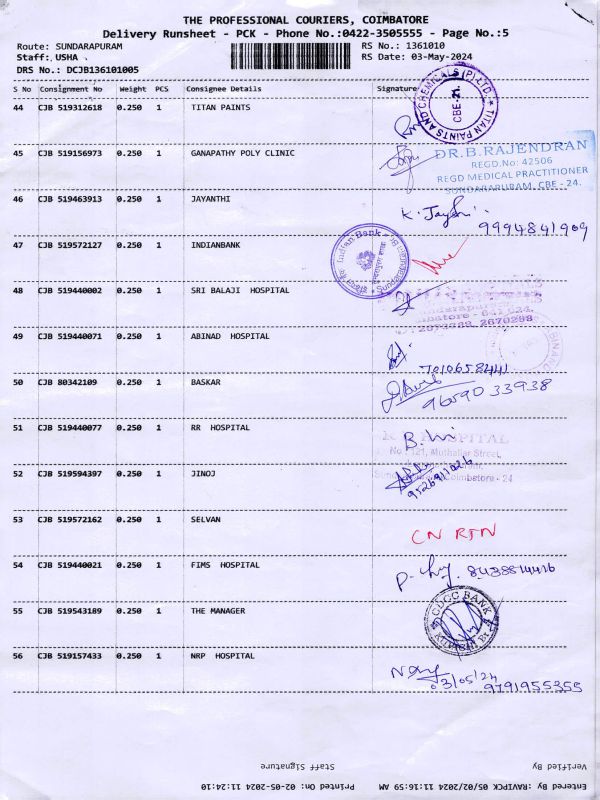 THE PROFESSIONAL COURIERS, COIMBATORE
Delivery Runsheet - PCK - Phone No.:0422-3505555 - Page No.:5
Route: SUNDARAPURAM RS No.: 1361010
Staff: USHA RS Date: 03-May-2024
DRS No.: DCJB136101005
S No Consignment No Weight PCS Consignee Details Signature
44 CJB 519312618 0.250 1 TITAN PAINTS
TITAN PAINTS AND CHEMICALS (P) LTD.
CBE-21.
45 CJB 519156973 0.250 1 GANAPATHY POLY CLINIC
DR.B.RAJENDRAN
REGD.No: 42506
REGD MEDICAL PRACTITIONER
SUNDARAPURAM, CBE - 24.
46 CJB 519463913 0.250 1 JAYANTHI
9994841909
47 CJB 519572127 0.250 1 INDIANBANK
for Indian Bank
48 CJB 519440002 0.250 1 SRI BALAJI HOSPITAL
2673288, 2670298
49 CJB 519440071 0.250 1 ABINAD HOSPITAL
7010658441
50 CJB 80342109 0.250 1 BASKAR
9659033938
51 CJB 519440077 0.250 1 RR HOSPITAL
HOSPITAL
121, Muthaliar Street,
Coimbatore - 24
52 CJB 519594397 0.250 1 JINOJ
53 CJB 519572162 0.250 1 SELVAN
CN RTN
54 CJB 519440021 0.250 1 FIMS HOSPITAL
55 CJB 519543189 0.250 1 THE MANAGER
CDCC BANK
56 CJB 519157433 0.250 1 NRP HOSPITAL
03/05/24
9791955355
Staff Signature Verified By
Printed On: 02-05-2024 11:24:10 Entered By :RAVIPCK 05/02/2024 11:16:59 AM